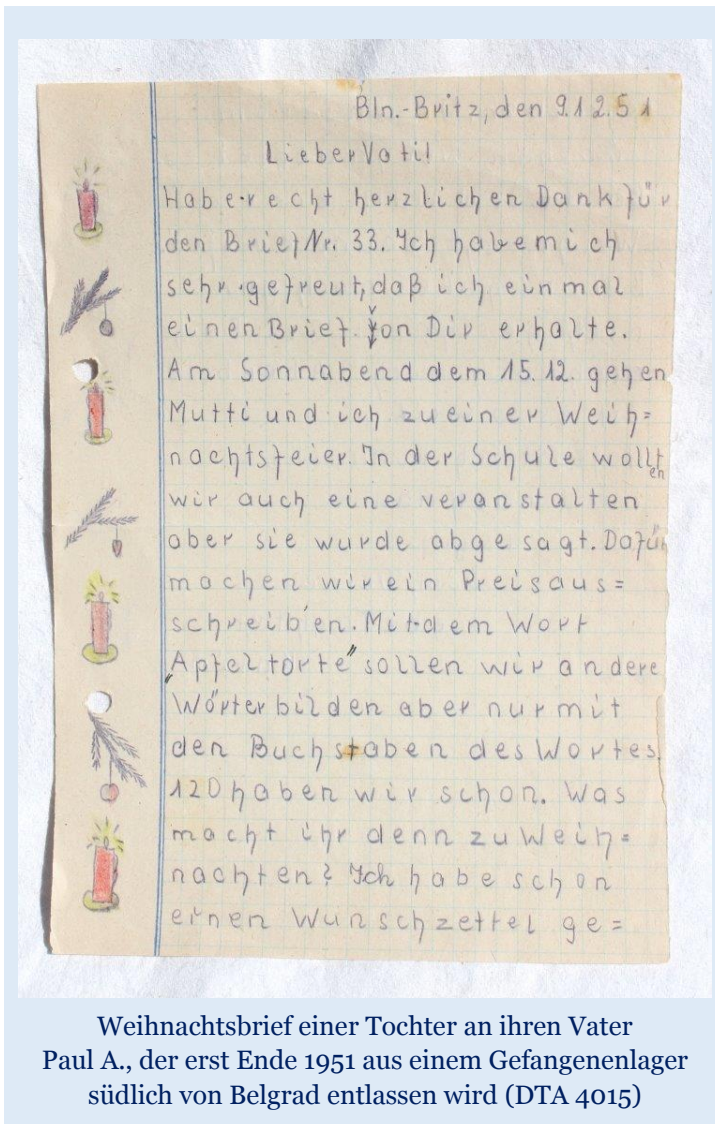 Bln.-Britz, den 9.12.51
Lieber Vati!
Habe recht herzlichen Dank für
den Brief Nr. 33. Ich habe mich
sehr gefreut, daß ich einmal
einen Brief von Dir erhalte.
Am Sonnabend dem 15.12. gehen
Mutti und ich zu einer Weih=
nachtsfeier. In der Schule wollten
wir auch eine veranstalten
aber sie wurde abgesagt. Dafür
machen wir ein Preisaus=
schreiben. Mit dem Wort
„Apfeltorte" sollen wir andere
Wörter bilden aber nur mit
den Buchstaben des Wortes.
120 haben wir schon. Was
macht ihr denn zu Weih=
nachten? Ich habe schon
einen Wunschzettel ge=
Weihnachtsbrief einer Tochter an ihren Vater
Paul A., der erst Ende 1951 aus einem Gefangenenlager
südlich von Belgrad entlassen wird (DTA 4015)